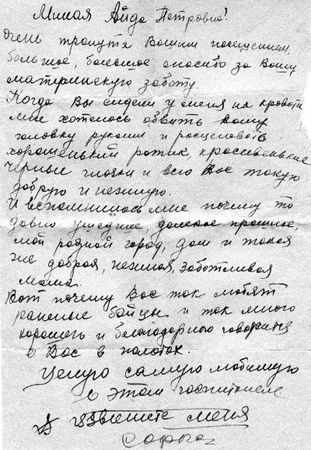 Милая Аида Петровна!
Очень тронута Вашим посещением
большое, большое спасибо за Вашу
материнскую заботу.
Когда Вы сидели у меня на кровати
мне хотелось обвить вашу
головку руками и расцеловать
хорошенький ротик, красивенькие
черные глазки и всю Вас такую
добрую и нежную.
И вспомнилось мне почему то
давно ушедшее, далекое прошлое,
мой родной город, дом и такая
же добрая, нежная, заботливая
мама.
Вот почему Вас так любят
раненые бойцы и так много
хорошего и благодарного говорится
о Вас в палатах.
Целую самую любимую
в этом госпитале
Извините меня